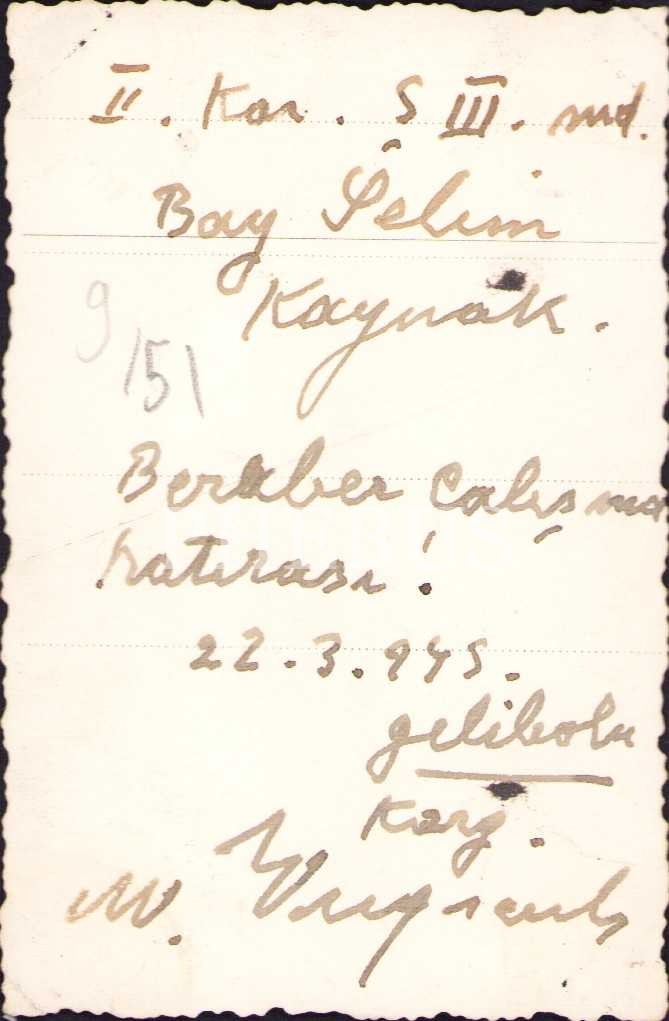 II. Kor. Ş III. md.
Bay Selim
Kaynak.
9
151
Beraber Calışma
hatırası!
22.3.945.
gelibolu
Korg.
M.